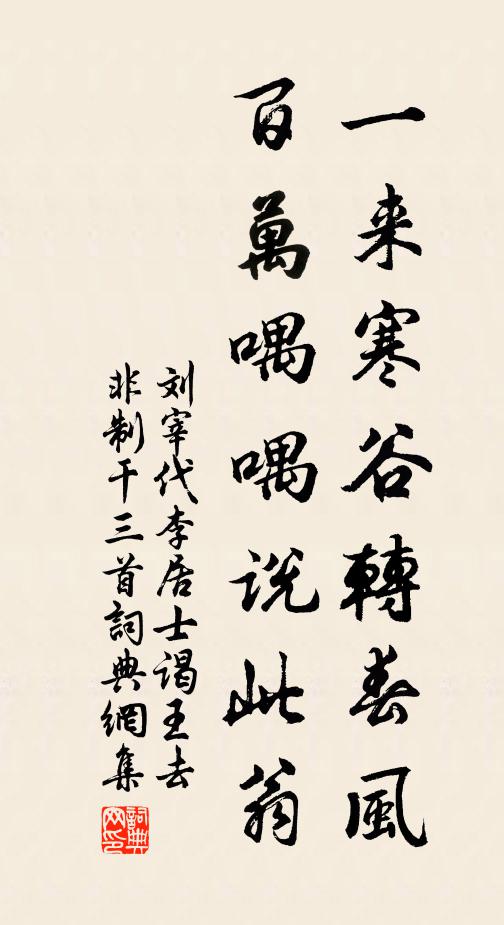 一来寒谷轉春風
百萬喁喁说此翁
刘宰代李居士谒王去
非制干三首詞典網集
詞典网印